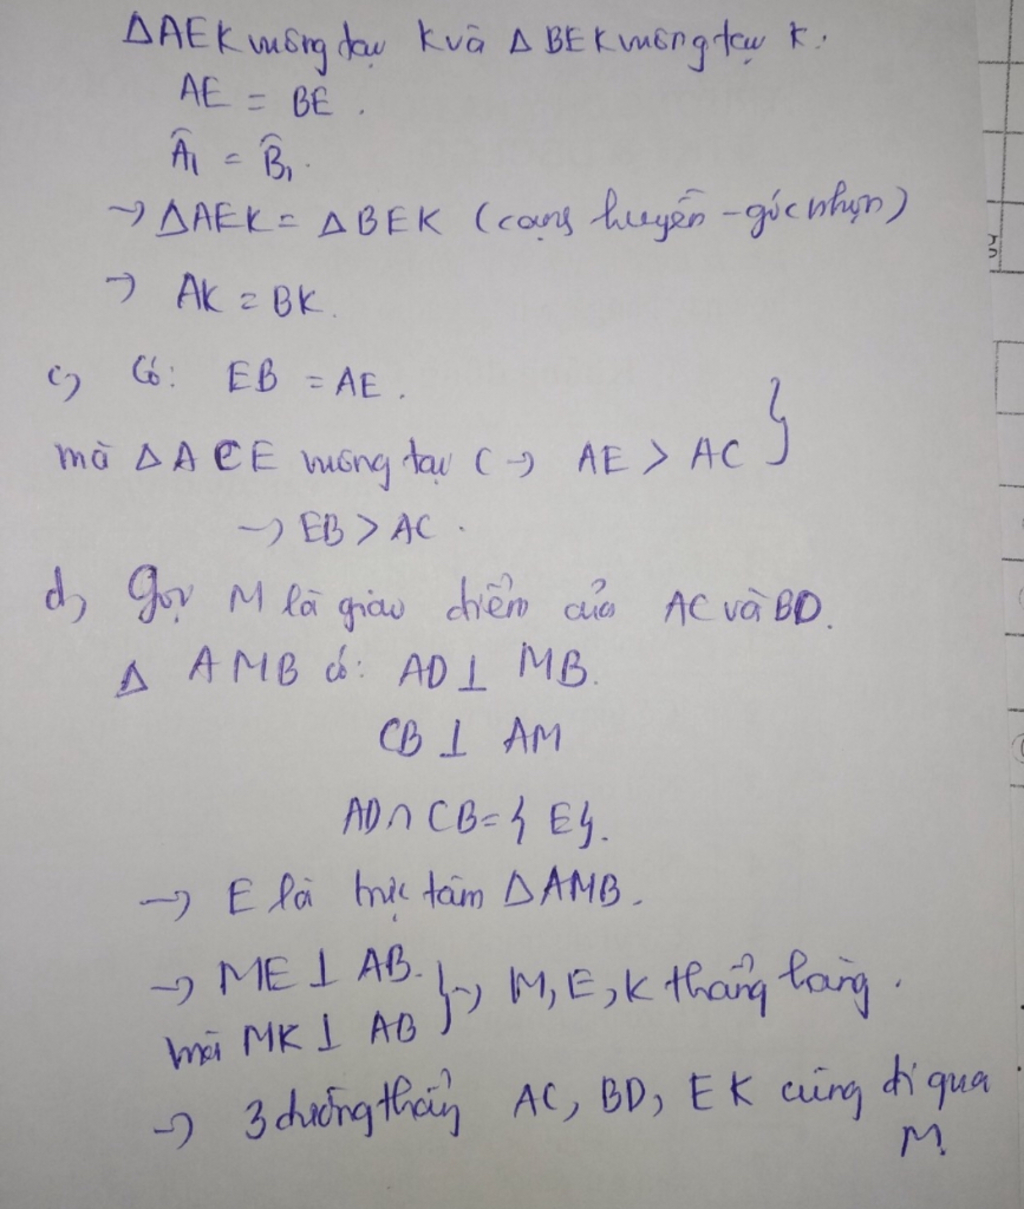 ΔAEK vuông tại K và Δ BEK vuông tại K.
AE = BE.
Â₁ = B̂₁.
→ ΔAEK = ΔBEK (cạnh huyền - góc nhọn)
→ AK = BK.
c, Có: EB = AE.
mà ΔACE vuông tại C → AE > AC }
→ EB > AC.
d, Gọi M là giao điểm của AC và BD.
Δ AMB có: AD ⊥ MB.
CB ⊥ AM
AD ∩ CB = {E}.
→ E là trực tâm ΔAMB.
→ ME ⊥ AB. } → M, E, K thẳng hàng.
mà MK ⊥ AB
→ 3 đường thẳng AC, BD, EK cùng đi qua
M.